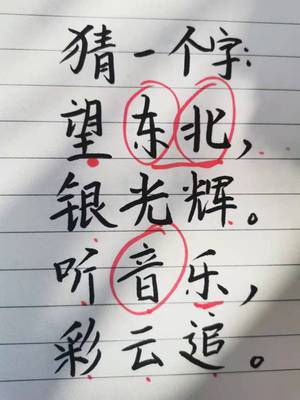 猜一个字:
望东北,
银光辉。
听音乐,
彩云追。